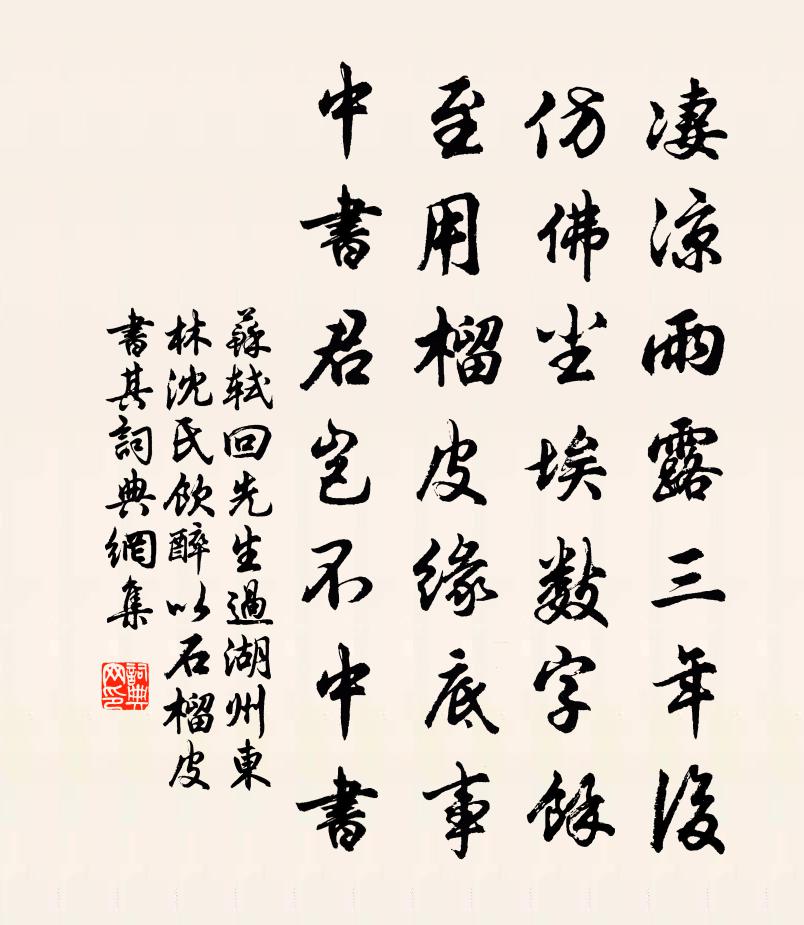 淒涼雨露三年後
仿佛塵埃數字餘
至用榴皮緣底事
中書君豈不中書
蘇軾回先生過湖州東
林沈氏飲醉以石榴皮
書其詞典網集
詞典網印